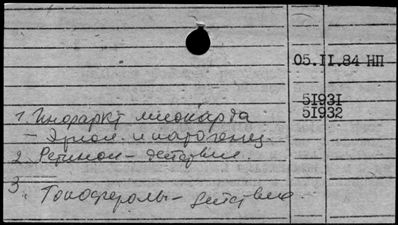 05.II.84 НП
5I93I
5I932
1. Инфаркт миокарда
- Этиол. и патогенез.
2. Ретинол - действие.
3. Токоферолы - действие.